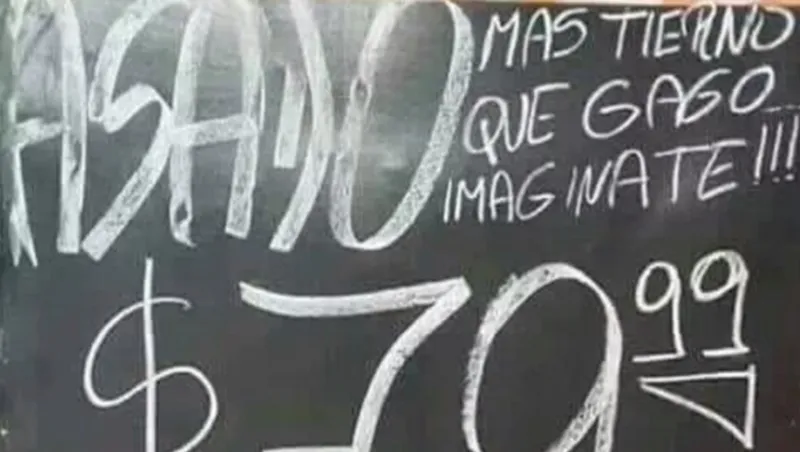 ASADO
MAS TIERNO
QUE GAGO
IMAGINATE!!!
$ 99